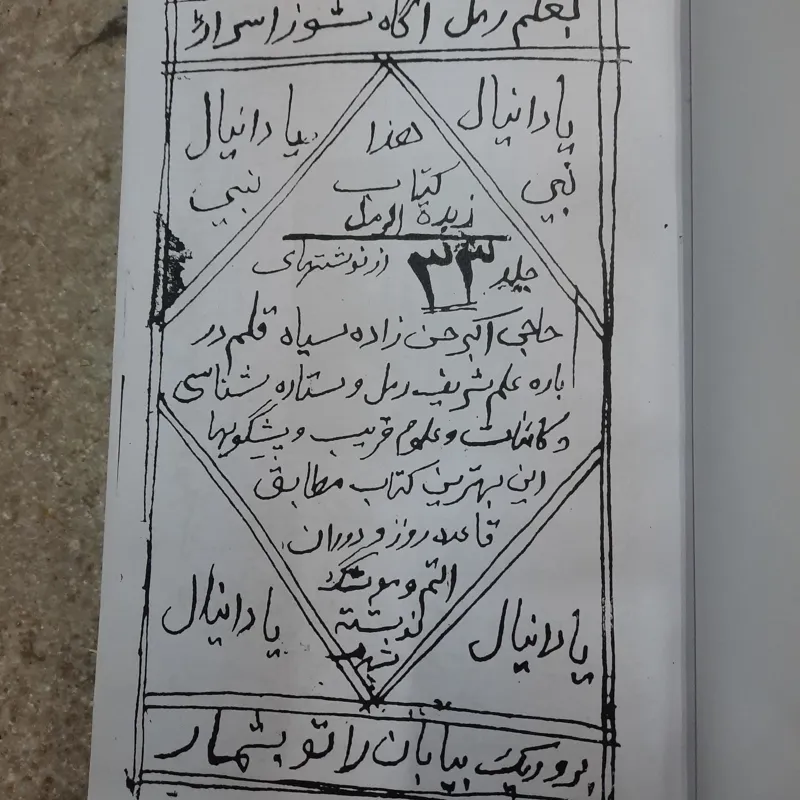 بعلم رمل آگاه شو ز اسرار
یا دانیال
نبی
یا دانیال
نبی
هذا
کتاب
زبدة الرمل
جلد ۳۳ از نوشتهای
حاجی اکبر حسن زاده سیاه قلم در
باره علم شریف رمل و ستاره شناسی
و کائنات و علوم قریب و پیشگویها
این بهترین کتاب مطابق
قاعده روز و دوران
اتم و موشک
نوشته
شد
یا دانیال
یا دانیال
برو ریگ بیابان را تو بشمار